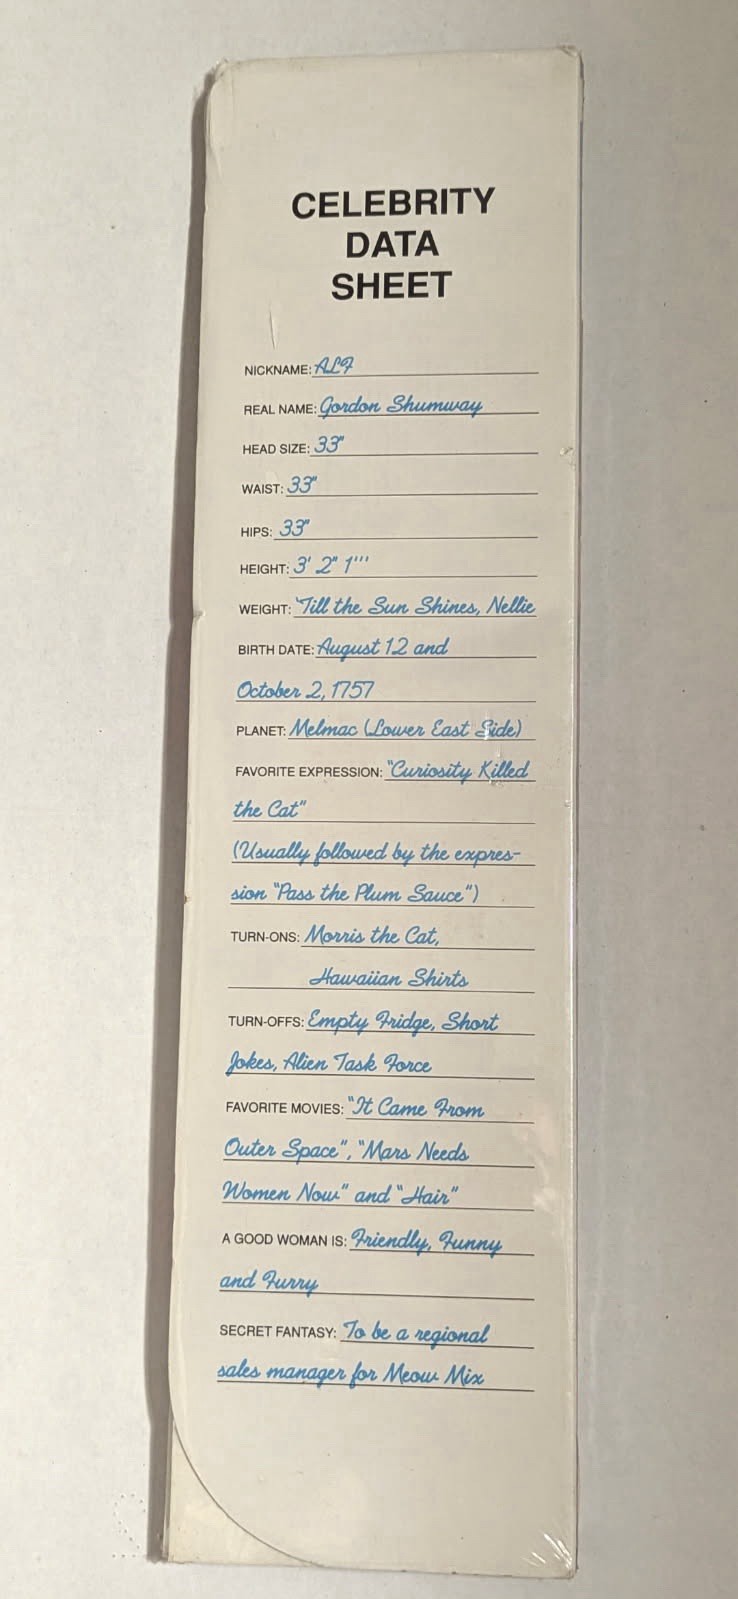 CELEBRITY
DATA
SHEET
NICKNAME: ALF
REAL NAME: Gordon Shumway
HEAD SIZE: 33"
WAIST: 33"
HIPS: 33"
HEIGHT: 3' 2" 1'''
WEIGHT: 'Till the Sun Shines, Nellie
BIRTH DATE: August 12 and
October 2, 1757
PLANET: Melmac (Lower East Side)
FAVORITE EXPRESSION: "Curiosity Killed
the Cat"
(Usually followed by the expres-
sion "Pass the Plum Sauce")
TURN-ONS: Morris the Cat,
Hawaiian Shirts
TURN-OFFS: Empty Fridge, Short
Jokes, Alien Task Force
FAVORITE MOVIES: "It Came From
Outer Space", "Mars Needs
Women Now" and "Hair"
A GOOD WOMAN IS: Friendly, Funny
and Furry
SECRET FANTASY: To be a regional
sales manager for Meow Mix